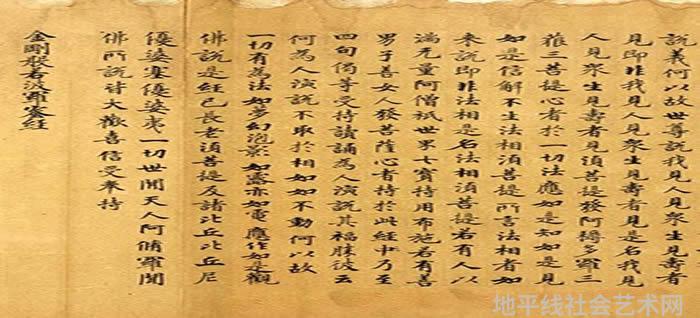 說義何以故世尊說我見人見衆生見壽者
見即非我見人見衆生見壽者見是名我見
人見衆生見壽者見須菩提發阿耨多羅三
藐三菩提心者於一切法應如是知如是見
如是信解不生法相須菩提所言法相者如
来說即非法相是名法相須菩提若有人以
滿无量阿僧祇世界七寳持用布施若有善
男子善女人發菩薩心者持於此經乃至
四句偈等受持讀誦為人演說其福勝彼云
何為人演說不取於相如如不動何以故
一切有為法如夢幻泡影如露亦如電應作如是觀
佛說是經已長老須菩提及諸比丘比丘尼
優婆塞優婆夷一切世間天人阿脩羅聞
佛所說皆大歡喜信受奉持
金剛般若波羅蜜經
地平线社会艺术网